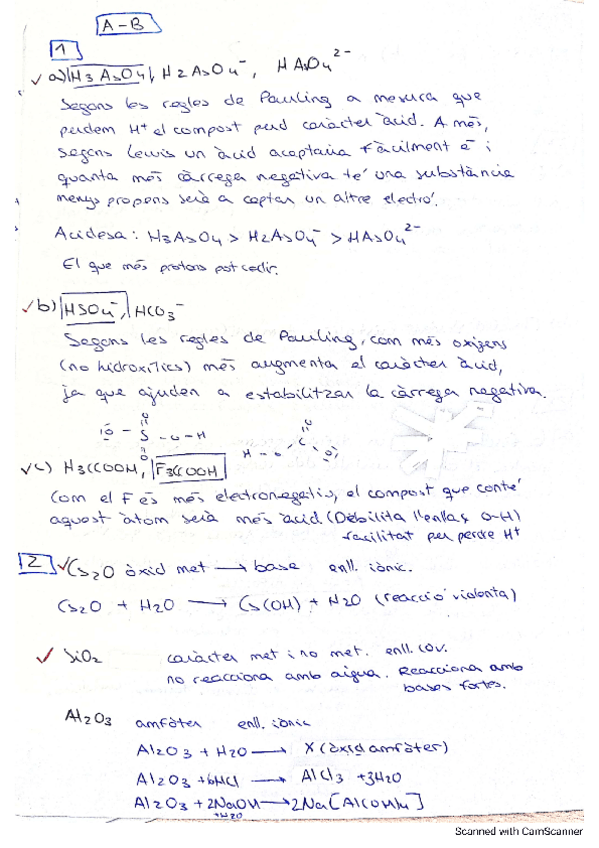 A-B
1
✓ a) H3AsO4, H2AsO4⁻, HAsO4²⁻
Segons les regles de Pauling a mesura que
perdem H⁺ el compost perd caràcter àcid. A més,
segons Lewis un àcid acceptaria fàcilment e⁻ i
quanta més càrrega negativa té una substància
menys propens serà a captar un altre electró.
Acidesa: H3AsO4 > H2AsO4⁻ > HAsO4²⁻
El que més protons pot cedir.
✓ b) HSO4⁻, HCO3⁻
Segons les regles de Pauling, com més oxigens
(no hidroxílics) més augmenta el caràcter àcid,
ja que ajuden a estabilitzar la càrrega negativa.
O
O - S - O - H
O
O
H - O C O
✓ c) H3CCOOH, F3CCOOH
Com el F és més electronegatiu, el compost que conté
aquest àtom serà més àcid (Debilita l'enllaç O-H)
facilitat per perdre H⁺
2 ✓ Cs2O òxid met → base enll. iònic.
Cs2O + H2O → Cs(OH) + H2O (reacció violenta)
✓ SiO2 caràcter met i no met. enll. cov.
no reacciona amb aigua. Reacciona amb
bases fortes.
Al2O3 amfòter enll. iònic
Al2O3 + H2O → X (òxid amfòter)
Al2O3 + 6HCl → AlCl3 + 3H2O
Al2O3 + 2NaOH → 2Na[Al(OH)4]
+H2O
Scanned with CamScanner